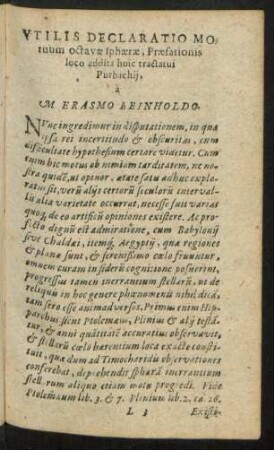 VTILIS DECLARATIO MO-
tuum octauæ sphæræ, Præfationis
loco addita huic tractatui
Purbachij,
à
M. ERASMO REINHOLDO.
NVnc ingredimur in disputationem, in qua
ipsa rei incertitudo & obscuritas, cum
difficultate hypothesium certare videtur. Cum
enim hic motus ob nimiam tarditatem, nec no-
stra quidẽ, ut opinor, ætate satu adhuc explora-
tus sit, verũ alijs certorũ seculorũ interval-
lis alia varietate occurrat, necesse fuit varias
quoq́ de eo artificũ opiniones existere. Ac pro-
fecto dignũ est admiratione, cum Babylonij
sive Chaldæi, itemq́ Aegyptij, quæ regiones
& plana sunt, & serenissimo cælo fruuntur,
omnem curam in siderũ cognitione posuerint,
progressus tamen inerrantium stellarũ, ut de
reliquis in hoc genere phænomenis nihil dicã,
tam sero esse animadversos. Primus enim Hip-
parchus sicut Ptolemæus, Plinius & alij testã-
tur, & anni quãtitatẽ accuratius observavit,
& stellarũ cælo hærentium loca exacte consti-
tuit, quæ dum ad Timocharidis observationes
conferebat, deprehendit sphæra inerrantium
stellarum aliquo etiam motu progredi. Vide
Ptolemæum lib. 3. & 7. Plinium lib. 2. ca. 26.
L 3 Existi-